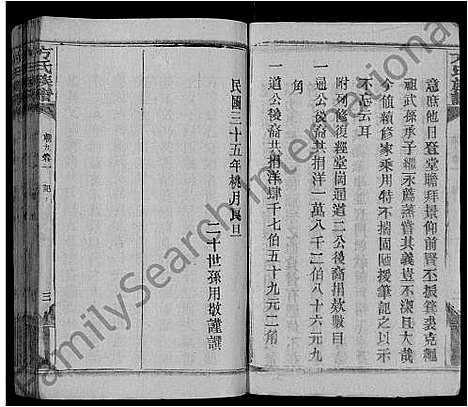 意庶他日登堂瞻拜景仰前哲丕振箕裘克繩
祖武孫承子繼永薦蒸嘗其義豈不深且大哉
今值續修家乘用特不揣固陋援筆記之以示
不忘云耳
附列修復經堂崗通道二公後裔捐欵數目
一通公後裔共捐洋一萬八千二伯八十六元九
角
一道公後裔共捐洋肆千七伯五十九元二角
民國三十五年桃月良旦
二十世孫用敬謹譔
方氏族譜
卷一 記
三
FamilySearch International